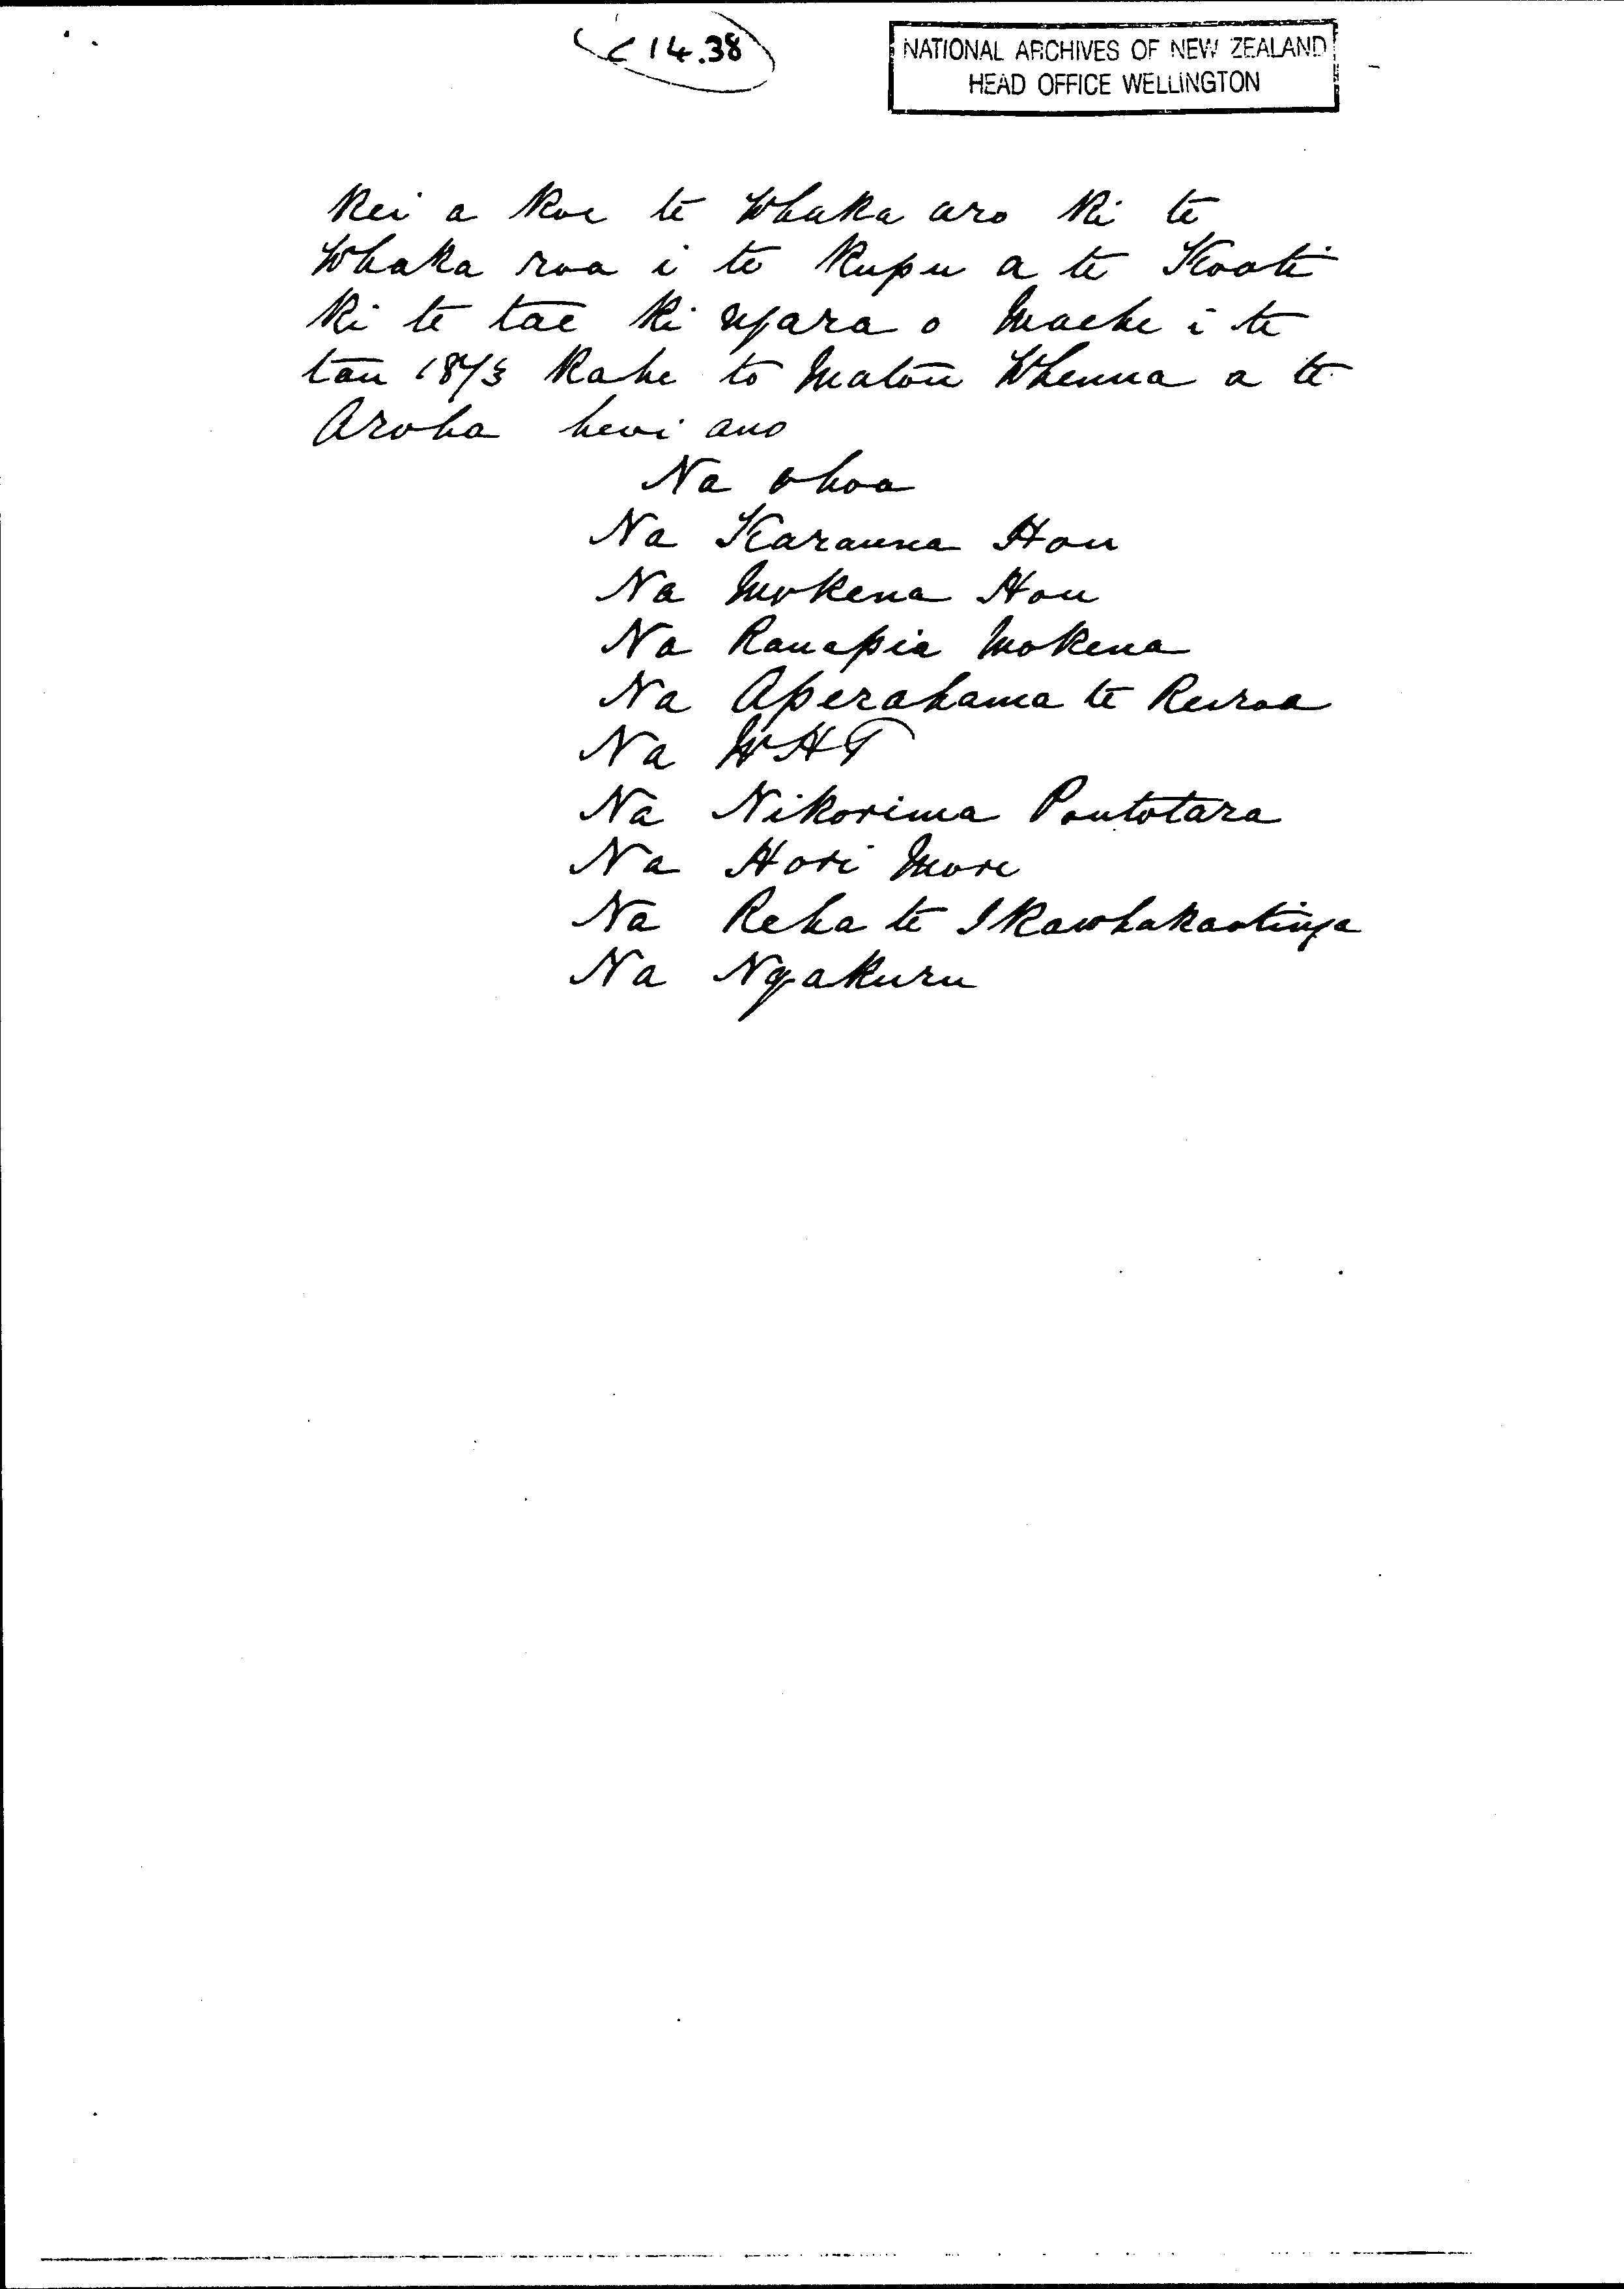 C 14.38
NATIONAL ARCHIVES OF NEW ZEALAND
HEAD OFFICE WELLINGTON
Kei a Koe te Whaka aro Ki te
Whaka roa i te Kupu a te Kooti
Ki te tae Ki nga ra o Maehe i te
tau 1873 Kahe to Matou Whenua a te
Aroha heoi ano
Na ohoa
Na Karauna Hou
Na Mokena Hou
Na Ranapia Mokena
Na Aperahama te Reiroa
Na WHT
Na Nikorima Poutotara
Na Hori More
Na Reha te Ikawhakaotinga
Na Ngakuru